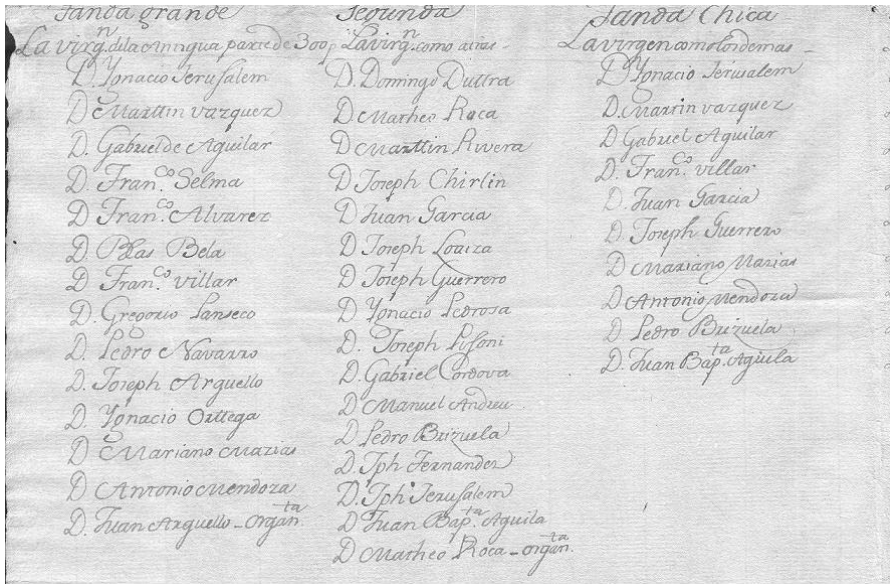 Tanda grande
La virgⁿ. de la Antigua parte de 300p
D. Ygnacio Jerusalem
D Marttin vazquez
D. Gabriel de Aguilar
D. Franᶜᵒ. Selma
D Franᶜᵒ. Alvarez
D. Blas Bela
D Franᶜᵒ. villar
D. Gregorio Panseco
D. Pedro Navarro
D. Joseph Arguello
D. Ygnacio Orttega
D Mariano Mazias
D Antonio Mendoza
D. Juan Arguello - Organᵗᵃ.
Segunda
La virgⁿ. como atras -
D. Domingo Duttra
D Matheo Roca
D Marttin Rivera
D Joseph Chirlin
D Juan Garcia
D Joseph Loaiza
D Joseph Guerrero
D Ygnacio Pedrosa
D. Joseph Pisoni
D. Gabriel Cordova
D Manuel Andreu
D Pedro Brizuela
D. Jph Fernandez
D. Jph Jerusalem
D Juan Bapᵗᵃ. Aguila
D Matheo Roca - organᵗᵃ.
Tanda Chica
La virgen como los demas -
D Ygnacio Jerusalem
D. Martin vazquez
D Gabriel Aguilar
D. Franᶜᵒ. villar
D. Juan Garcia
D. Joseph Guerrero
D Mariano Mazias
D Antonio Mendoza
D Pedro Brizuela
D. Juan Bapᵗᵃ. Aguila